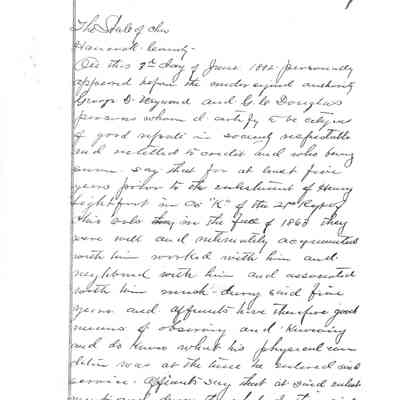 The State of Ohio
Hancock County
On this 3rd day of June 1882 personally
appeared before the undersigned authority
George D. Heyward and C. C. Douglass
persons whom I certify to be citizens
of good repute in society respectable
and entitled to credit and who being
sworn say that for at least five
years prior to the enlistment of Henry
Lightfoot in Co "K" of the 21st Regt
Ohio vols in the fall of 1863 they
were well and intimately acquainted
with him worked with him and
neighbored with him and associated
with him much during said five
years and affiants have therefore good
means of observing and knowing
and do know what his physical con
dition was at the time he entered said
service. Affiants say that at said enlist